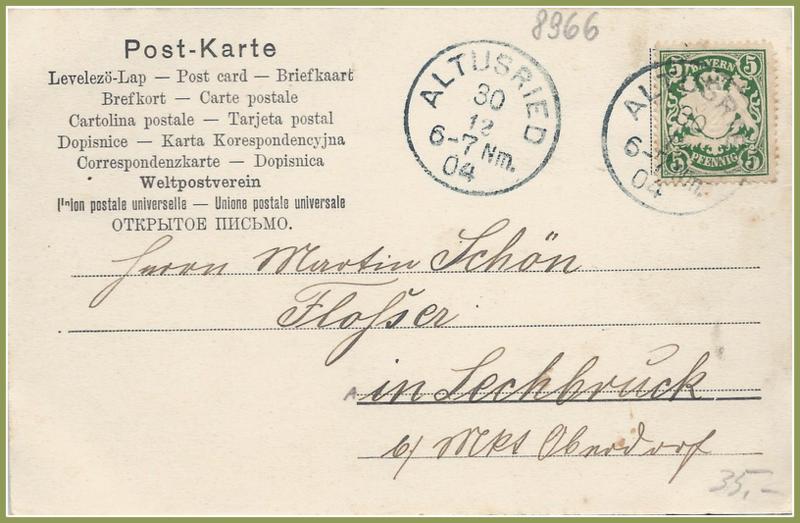 8966
Post-Karte
Levelezö-Lap — Post card — Briefkaart
Brefkort — Carte postale
Cartolina postale — Tarjeta postal
Dopisnice — Karta Korespondencyjna
Correspondenzkarte — Dopisnica
Weltpostverein
Union postale universelle — Unione postale universale
ОТКРЫТОЕ ПИСЬМО.
ALTUSRIED
30
12
6-7 Nm.
04
5 BAYERN 5
5 PFENNIG 5
ALTUSR
30
6-7 Nm.
04
Herrn Martin Schön
Floßser
in Lechbruck
b/ Mkt Oberdorf
35,-